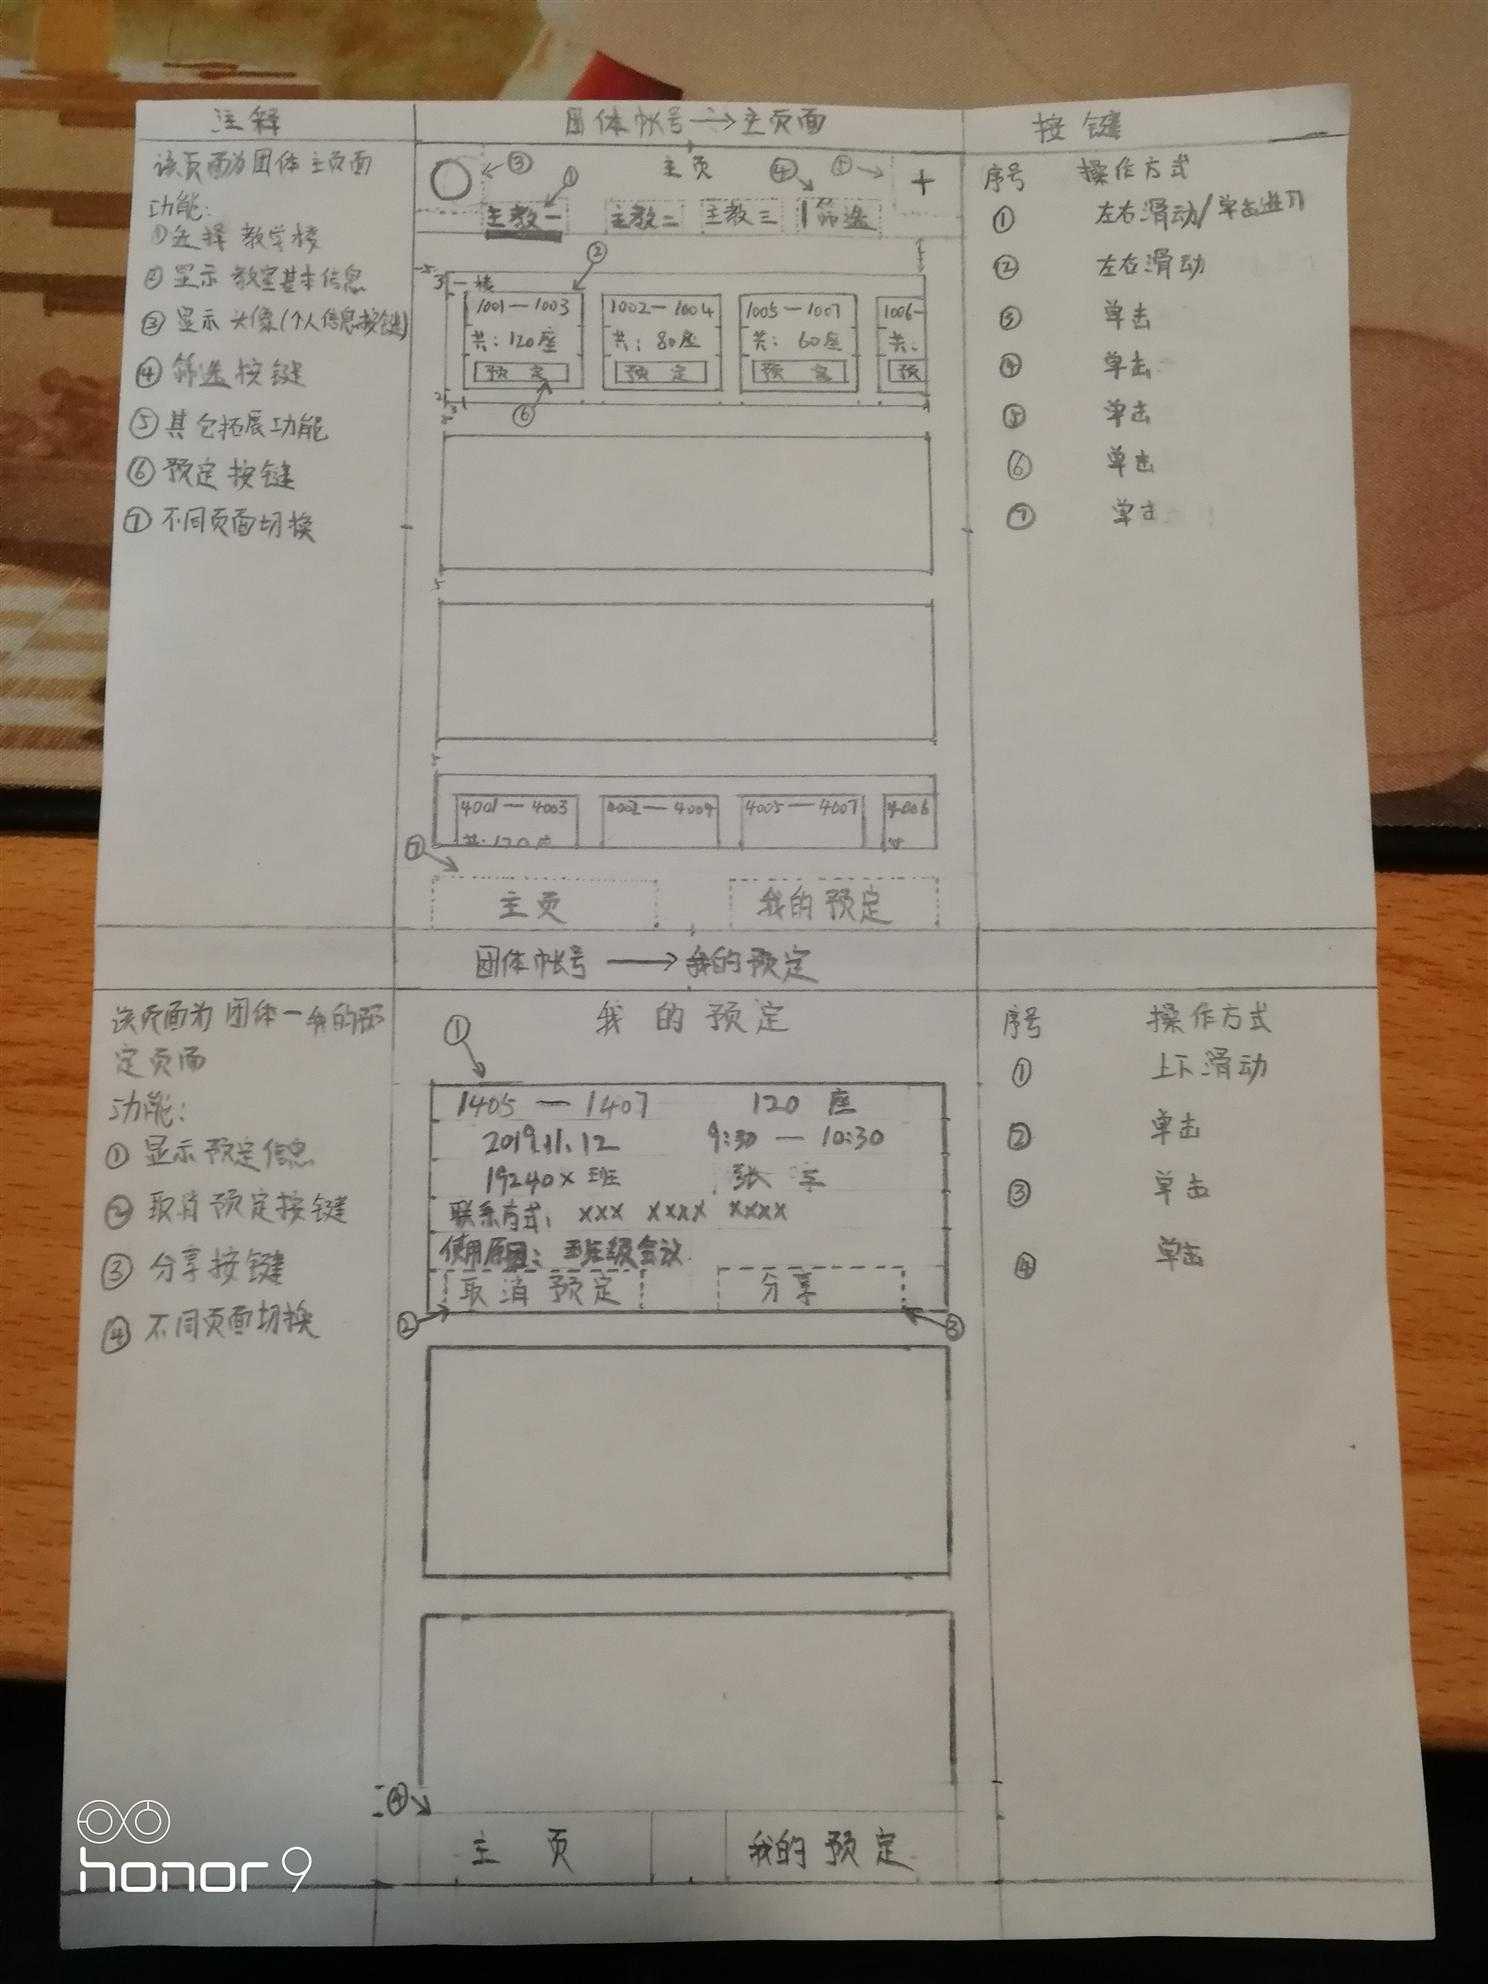 注释
团体帐号→主页面
按键
该页面为团体主页面
功能:
①选择教学楼
②显示教室基本信息
③显示头像(个人信息按键)
④筛选按键
⑤其它拓展功能
⑥预定按键
⑦不同页面切换
③
①
主页
④
⑤
+
主教一
主教二
主教三
筛选
②
一楼
1001—1003
1002—1004
1005—1007
1006—
共:120座
共:80座
共:60座
共:
预定
预定
预定
预
⑥
4001—4003
4002—4004
4005—4007
4006
共:120座
⑦
主页
我的预定
序号 操作方式
① 左右滑动/单击进入
② 左右滑动
③ 单击
④ 单击
⑤ 单击
⑥ 单击
⑦ 单击
团体帐号→我的预定
该页面为团体—我的预
定页面
功能:
①显示预定信息
②取消预定按键
③分享按键
④不同页面切换
①
我的预定
1405—1407 120座
2019.11.12 9:30—10:30
19240x班
联系方式: xxx xxxx xxxx
使用原因: 班级会议
取消预定
分享
②
③
④
主页
我的预定
序号 操作方式
① 上下滑动
② 单击
③ 单击
④ 单击
honor 9